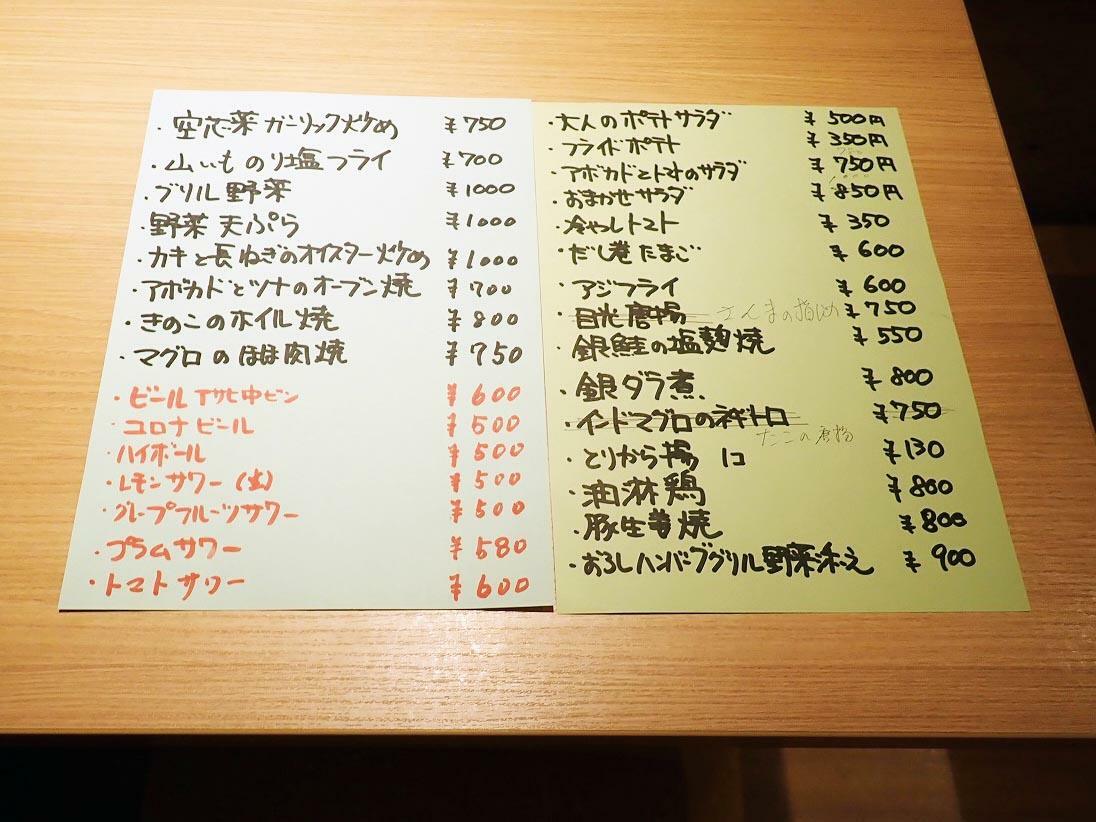 ・空芯菜ガーリック炒め ¥750
・山いものり塩フライ ¥700
・グリル野菜 ¥1000
・野菜天ぷら ¥1000
・カキと長ねぎのオイスター炒め ¥1000
・アボカドとツナのオーブン焼 ¥700
・きのこのホイル焼 ¥800
・マグロのほほ肉焼 ¥750
・ビール アサヒ中ビン ¥600
・コロナビール ¥500
・ハイボール ¥500
・レモンサワー(生) ¥500
・グレープフルーツサワー ¥500
・プラムサワー ¥580
・トマトサワー ¥600
・大人のポテトサラダ ¥500円
・フライドポテト ¥350円
・アボカドとトマトのサラダ ¥750円
・おまかせサラダ ¥850円
・冷やしトマト ¥350
・だし巻たまご ¥600
・アジフライ ¥600
・目光唐揚 さんまの ¥750
・銀鮭の塩麹焼 ¥550
・銀ダラ煮 ¥800
・インドマグロのネギトロ ¥750
たこの唐揚
・とりから揚 1コ ¥130
・油淋鶏 ¥800
・豚生姜焼 ¥800
・おろしハンバーググリル野菜添え ¥900